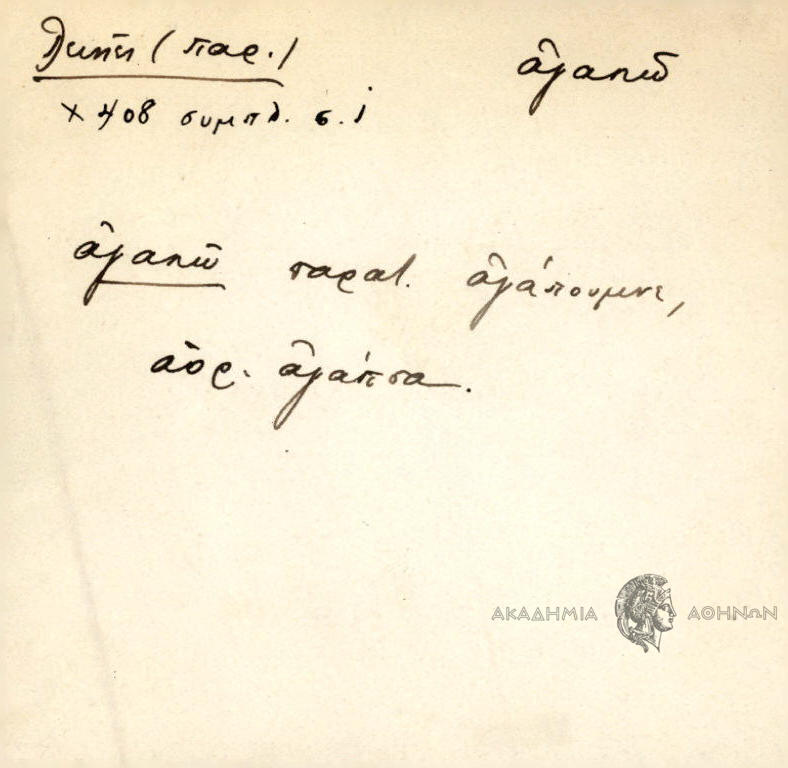 (Παρ.) ἀγαπῶ
× 408 συμπλ. σ. 1
ἀγαπῶ παρατ. ἀγάπουμνι,
ἀόρ. ἀγάπσα.
ΑΚΑΔΗΜΙΑ ΑΘΗΝΩΝ